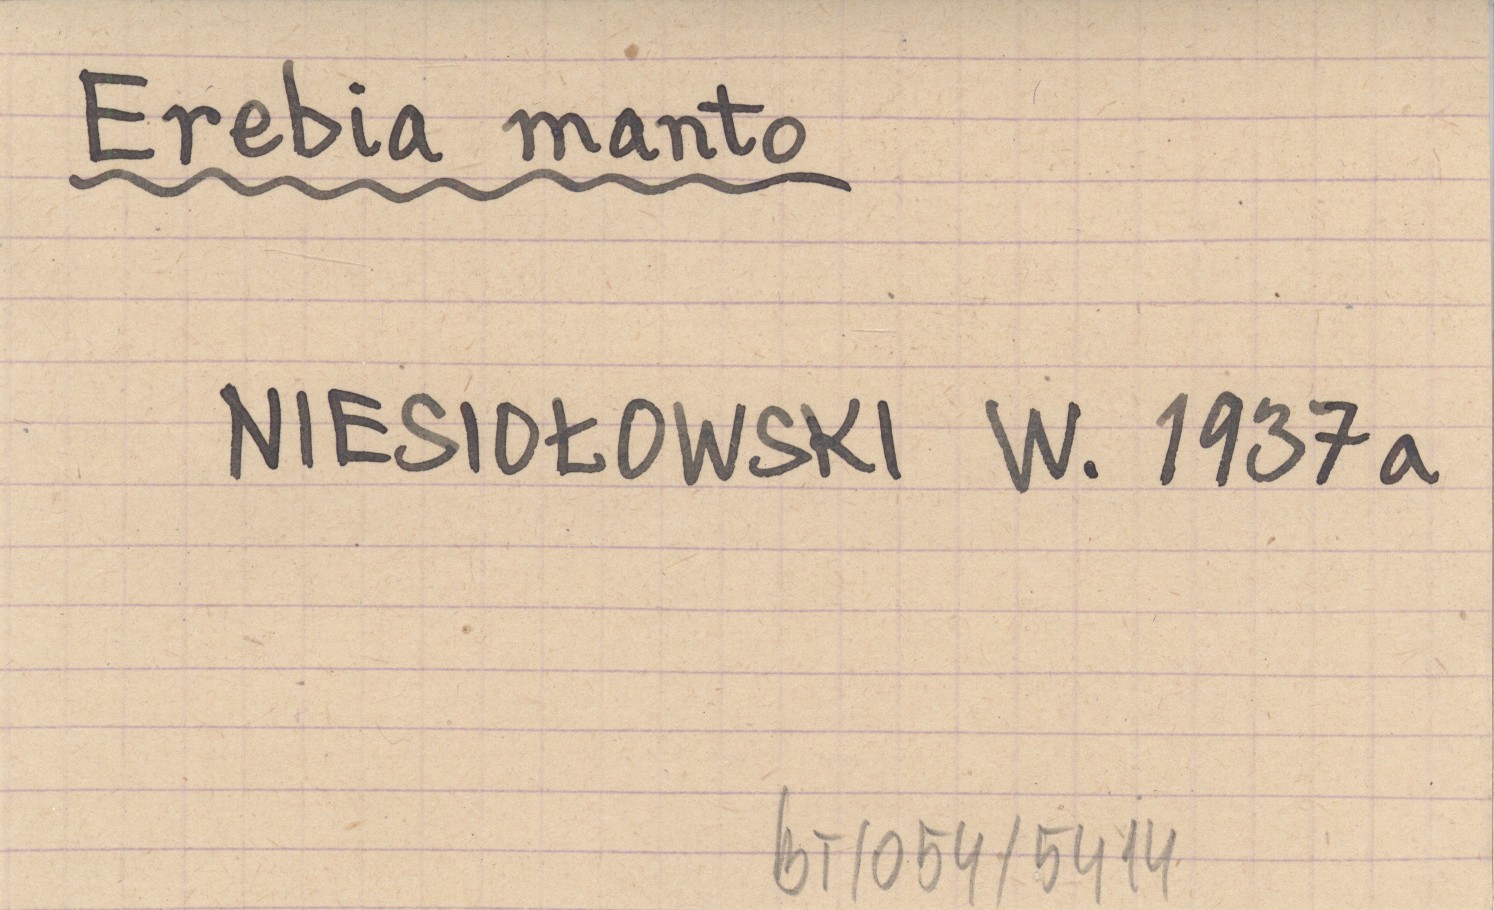 Erebia manto
NIESIOŁOWSKI W. 1937a
BT/054/5414